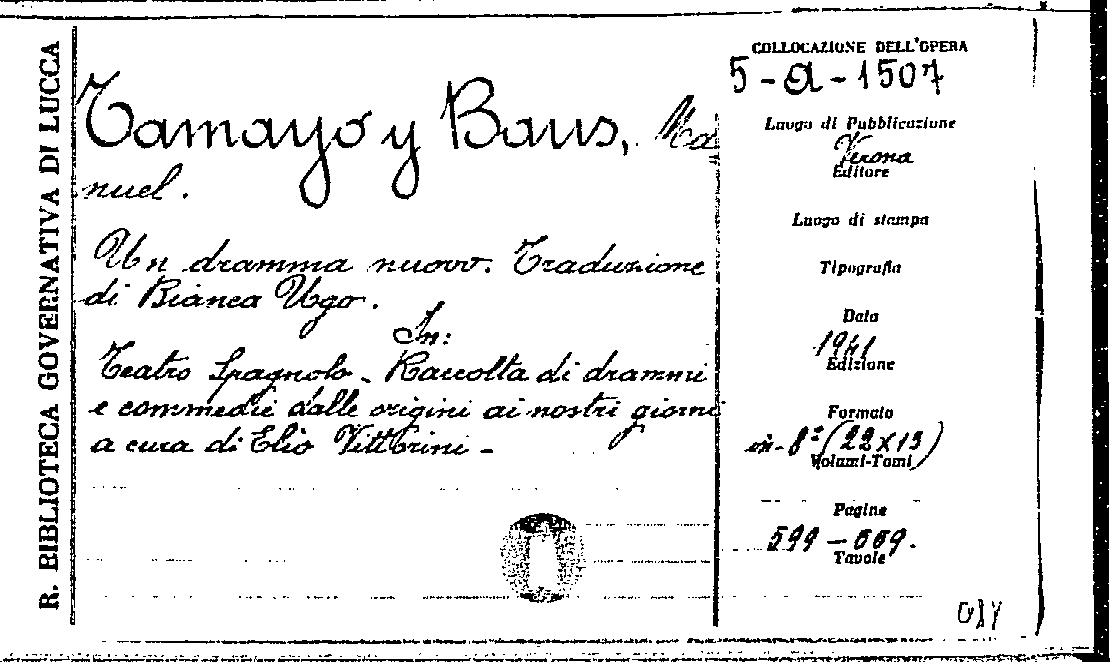 R. BIBLIOTECA GOVERNATIVA DI LUCCA
Tamayo y Baus, Ma
nuel.
Un dramma nuovo. Traduzione
di Bianca Ugo.
In:
Teatro Spagnolo - Raccolta di drammi
e commedie dalle origini ai nostri giorni
a cura di Elio Vittorini -
COLLOCAZIONE DELL'OPERA
5-a-1507
Luogo di Pubblicazione
Verona
Editore
Luogo di stampa
Tipografia
Data
1941
Edizione
Formato
in-8° (22x13)
Volumi-Tomi
Pagine
599-669.
Tavole